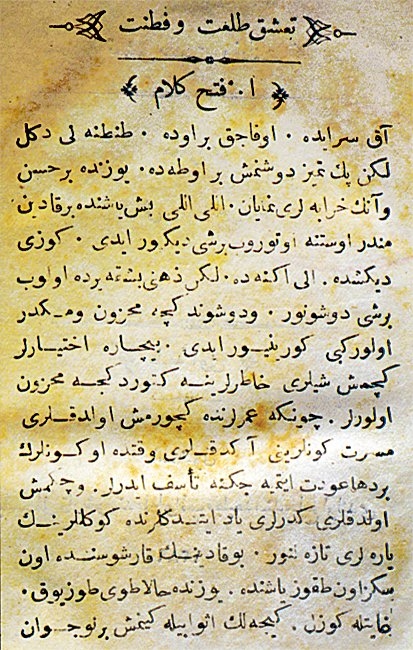 تعشق طلعت و فطنت
۱ ٠ فتح كلام
آق سرايده ٠ اوفاجق بر اوده ٠ طنطنه لی دكل
لكن پك تميز دوشنمش بر اوطه ده ٠ يوزنده بر حسن
و آنك خرابه لری نمايان ٠ اللی اللی بش ياشنده برقادين
مندر اوستنه اوتوروب برشی ديكيور ايدی ٠ كوزی
ديكشده . الی اكنه ده ٠ لكن ذهنی بشقه يرده اولوب
برشی دوشونور ٠ ودوشوندكچه محزون ومكدر
اولور كبی كورينيور ايدی ٠ بيچاره اختيارلر
كچمش شيلری خاطرلرينه كتوردكجه محزون
اولورلر . چونكه عمرلرنده كچورمش اولدقلری
مسرت كونلرينی آكدقلری وقتده او كونلرك
بردها عودت ايتميه جكنه تأسف ايدرلر . وچكمش
اولدقلری كدرلری ياد ايتدكلرنده كوكللرينك
ياره لری تازه لنور ٠ بوقادينك قارشوسنده اون
سكز اون طقوز ياشنده . يوزنده حالا طوی طوز يوق ٠
غايتله كوزل . كيجه لك اثوابيله كينمش بر نوجوان